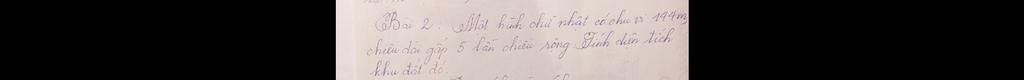 Bài 2: Một hình chữ nhật có chu vi 144m,
chiều dài gấp 5 lần chiều rộng Tính diện tích
khu đất đó.